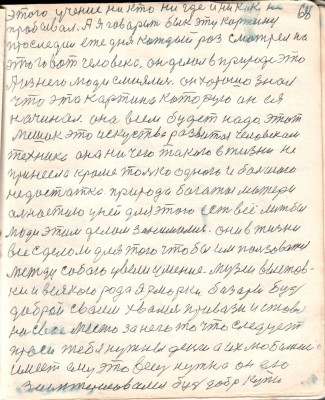 68
этого учение никто ни где и никак не
пробивал. А я говорит был эту картину
проследил ежедня каждый раз смотрел на
этого вот человека. он делол в природе это
А из него люди смиялись. он хорошо знал
что эта картина которую он ся
начинал. она всем будет надо этот
это искуство развитая человекам
техника она ни чего такого в жизни не
принесла кроме только одного и балшого
недостатка. природа богаты матери
у ней для этого есть всё литбы
люди этим делом занималис. они в жизни
все делоли для того что бы им ползоватся
между собою умело умение. Музеи выстов-
ки и всякого рода ярморки базары буд
доброй своем хвалит привази и стови
на свое место за него то что следует
проси тебя нужны денги а их любител
имеет ему это вещ нужна он ею
буд добр купи